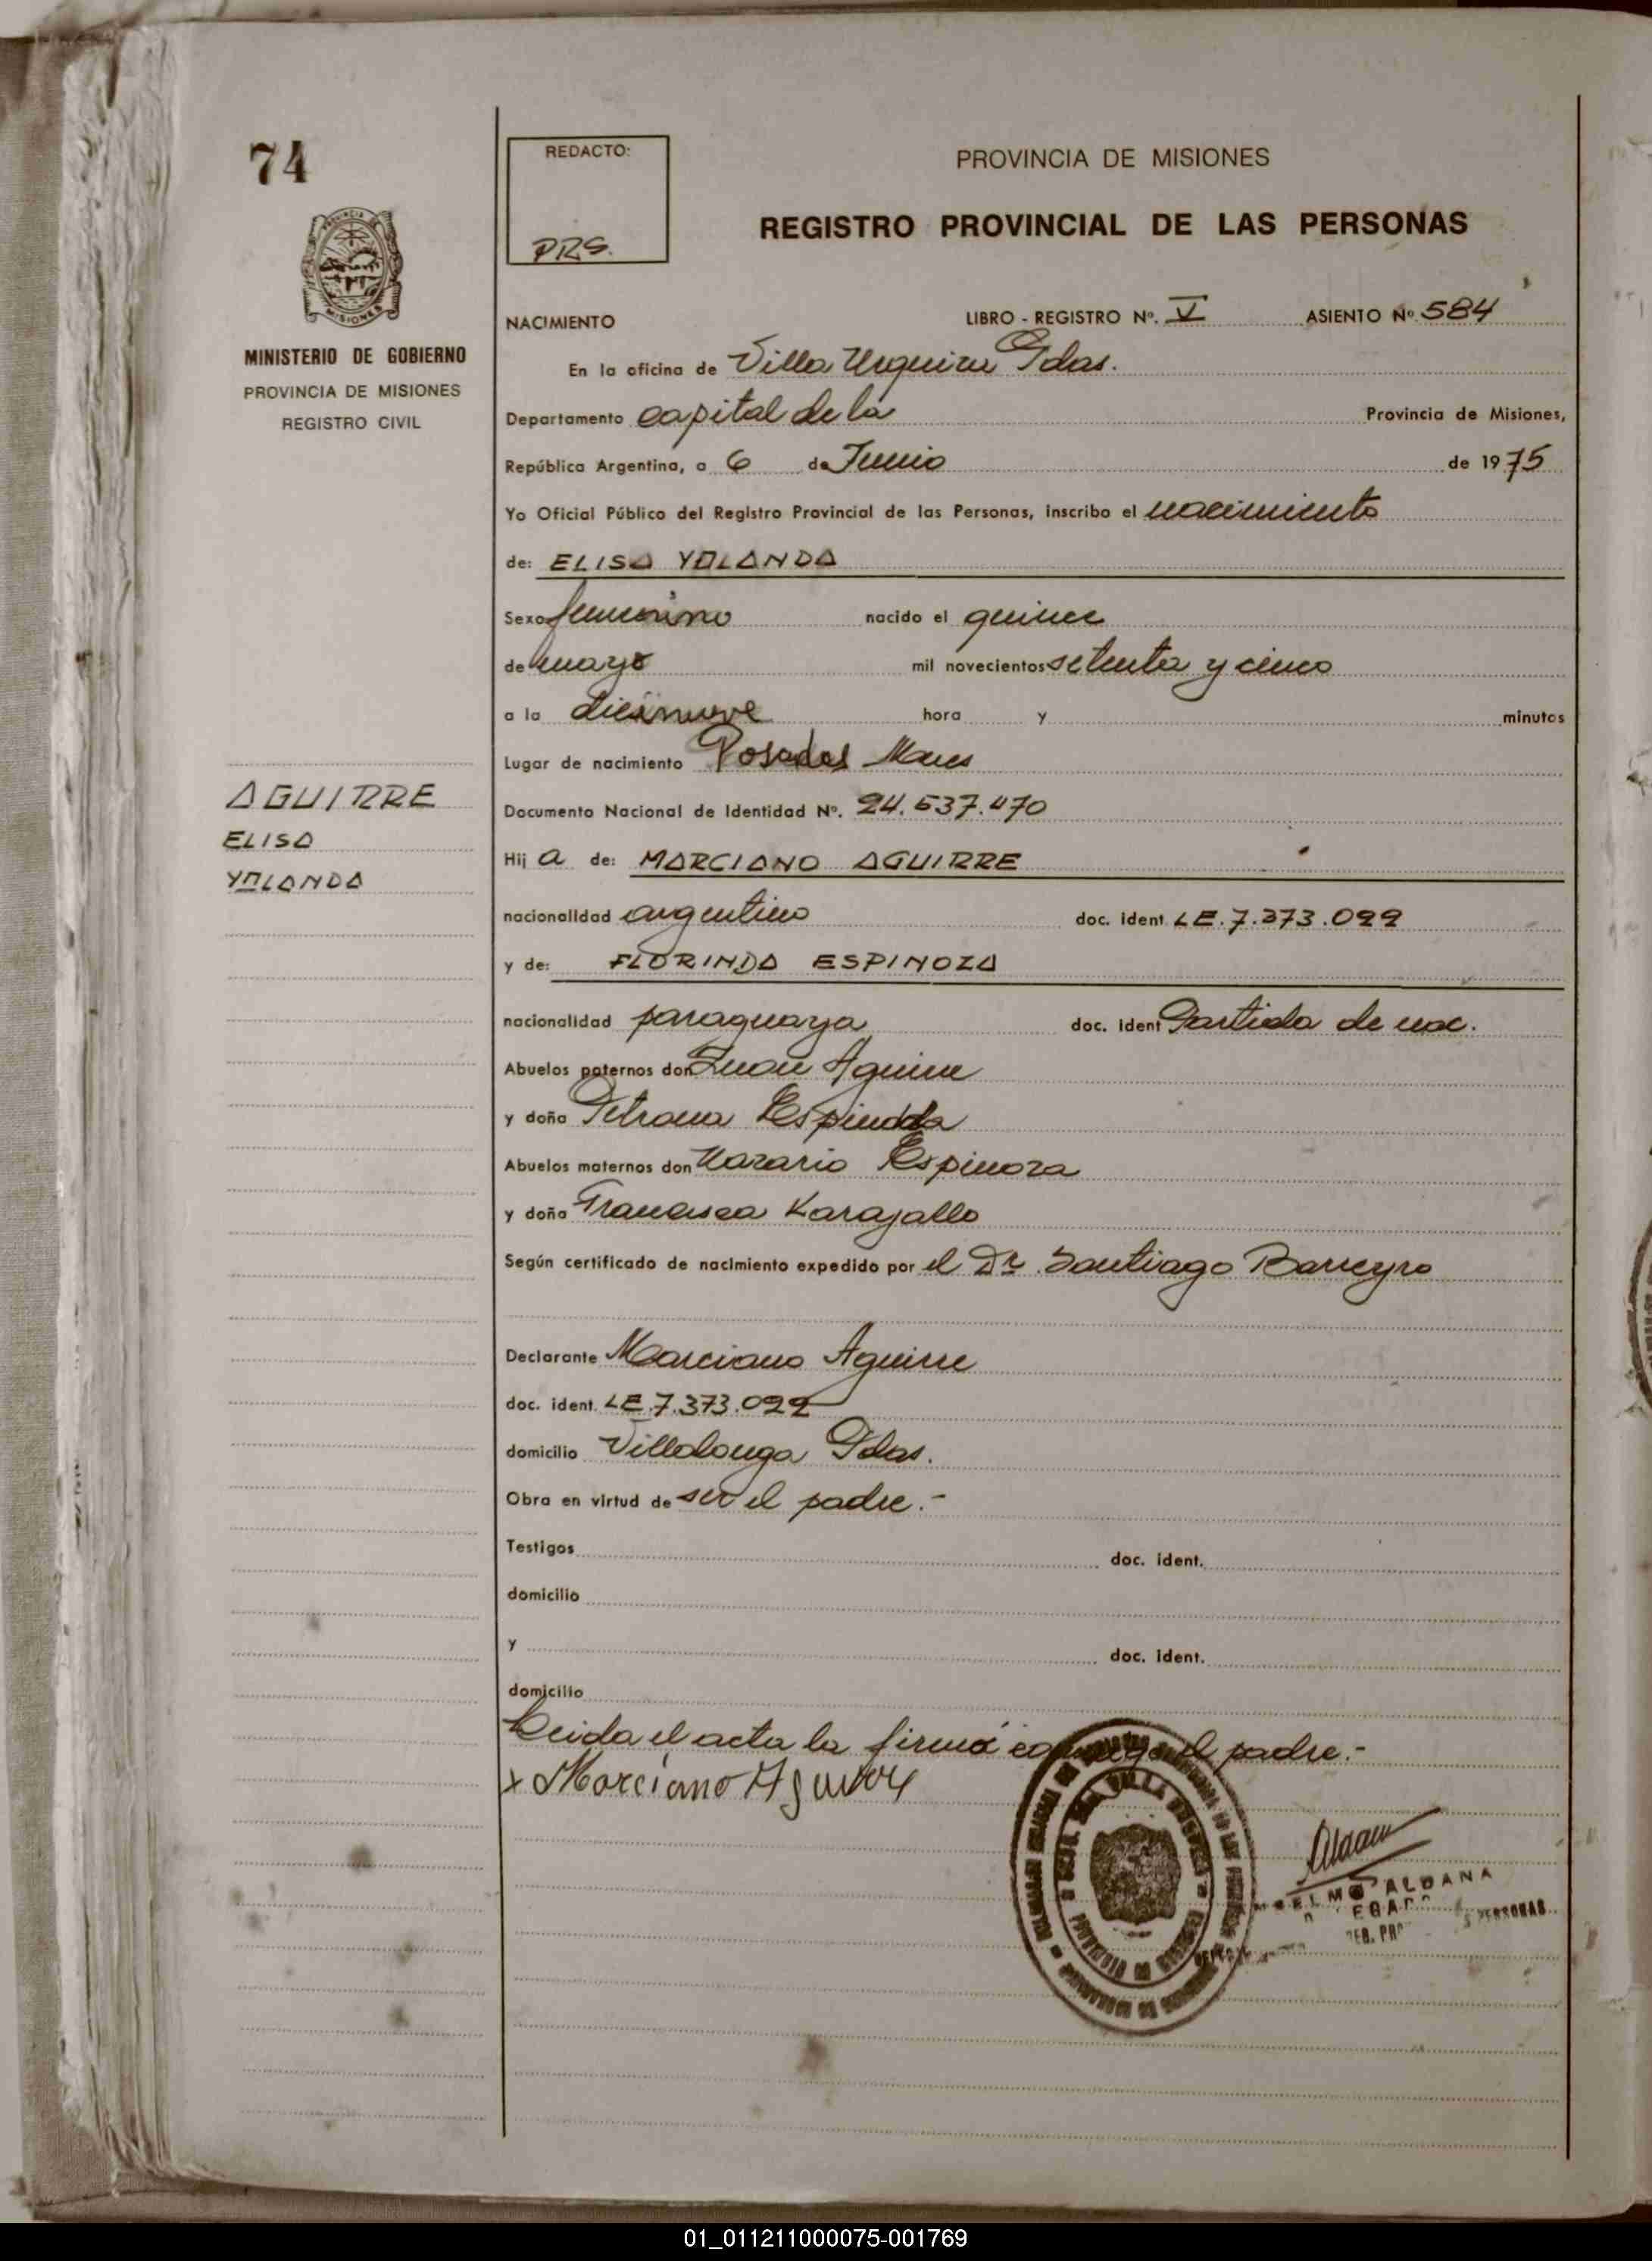 74
REDACTO:
PRS.
PROVINCIA DE MISIONES
REGISTRO PROVINCIAL DE LAS PERSONAS
MINISTERIO DE GOBIERNO
PROVINCIA DE MISIONES
REGISTRO CIVIL
NACIMIENTO LIBRO - REGISTRO Nº. V ASIENTO Nº 584
En la oficina de Villa Urquiza Pdas.
Departamento capital de la Provincia de Misiones,
República Argentina, a 6 de Junio de 1975
Yo Oficial Público del Registro Provincial de las Personas, inscribo el nacimiento
de: ELISA YOLANDA
Sexo femenino nacido el quince
de mayo mil novecientos setenta y cinco
a la diecinueve hora y minutos
Lugar de nacimiento Posadas Mnes
AGUIRRE
ELISA
YOLANDA
Documento Nacional de Identidad Nº. 24.537.470
Hij a de: MARCIANO AGUIRRE
nacionalidad argentino doc. ident LE. 7.373.099
y de: FLORINDA ESPINOZA
nacionalidad paraguaya doc. ident Partida de nac.
Abuelos paternos don Juan Aguirre
y doña Petrona Espindola
Abuelos maternos don Nazario Espinoza
y doña Francisca Karajallo
Según certificado de nacimiento expedido por el Dr. Santiago Barreyro
Declarante Marciano Aguirre
doc. ident. LE.7.373.099
domicilio Villalonga Pdas.
Obra en virtud de ser el padre.-
Testigos doc. ident.
domicilio
y doc. ident.
domicilio
Leida el acta la firmá conmigo el padre.-
x Marciano Aguirre
ALDANA
PERSONAS
01_011211000075-001769